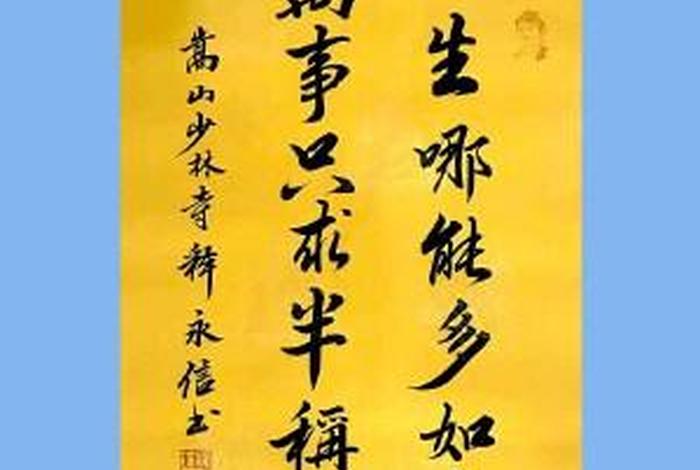 生哪能多如
事只求半稱
嵩山少林寺釋永信书